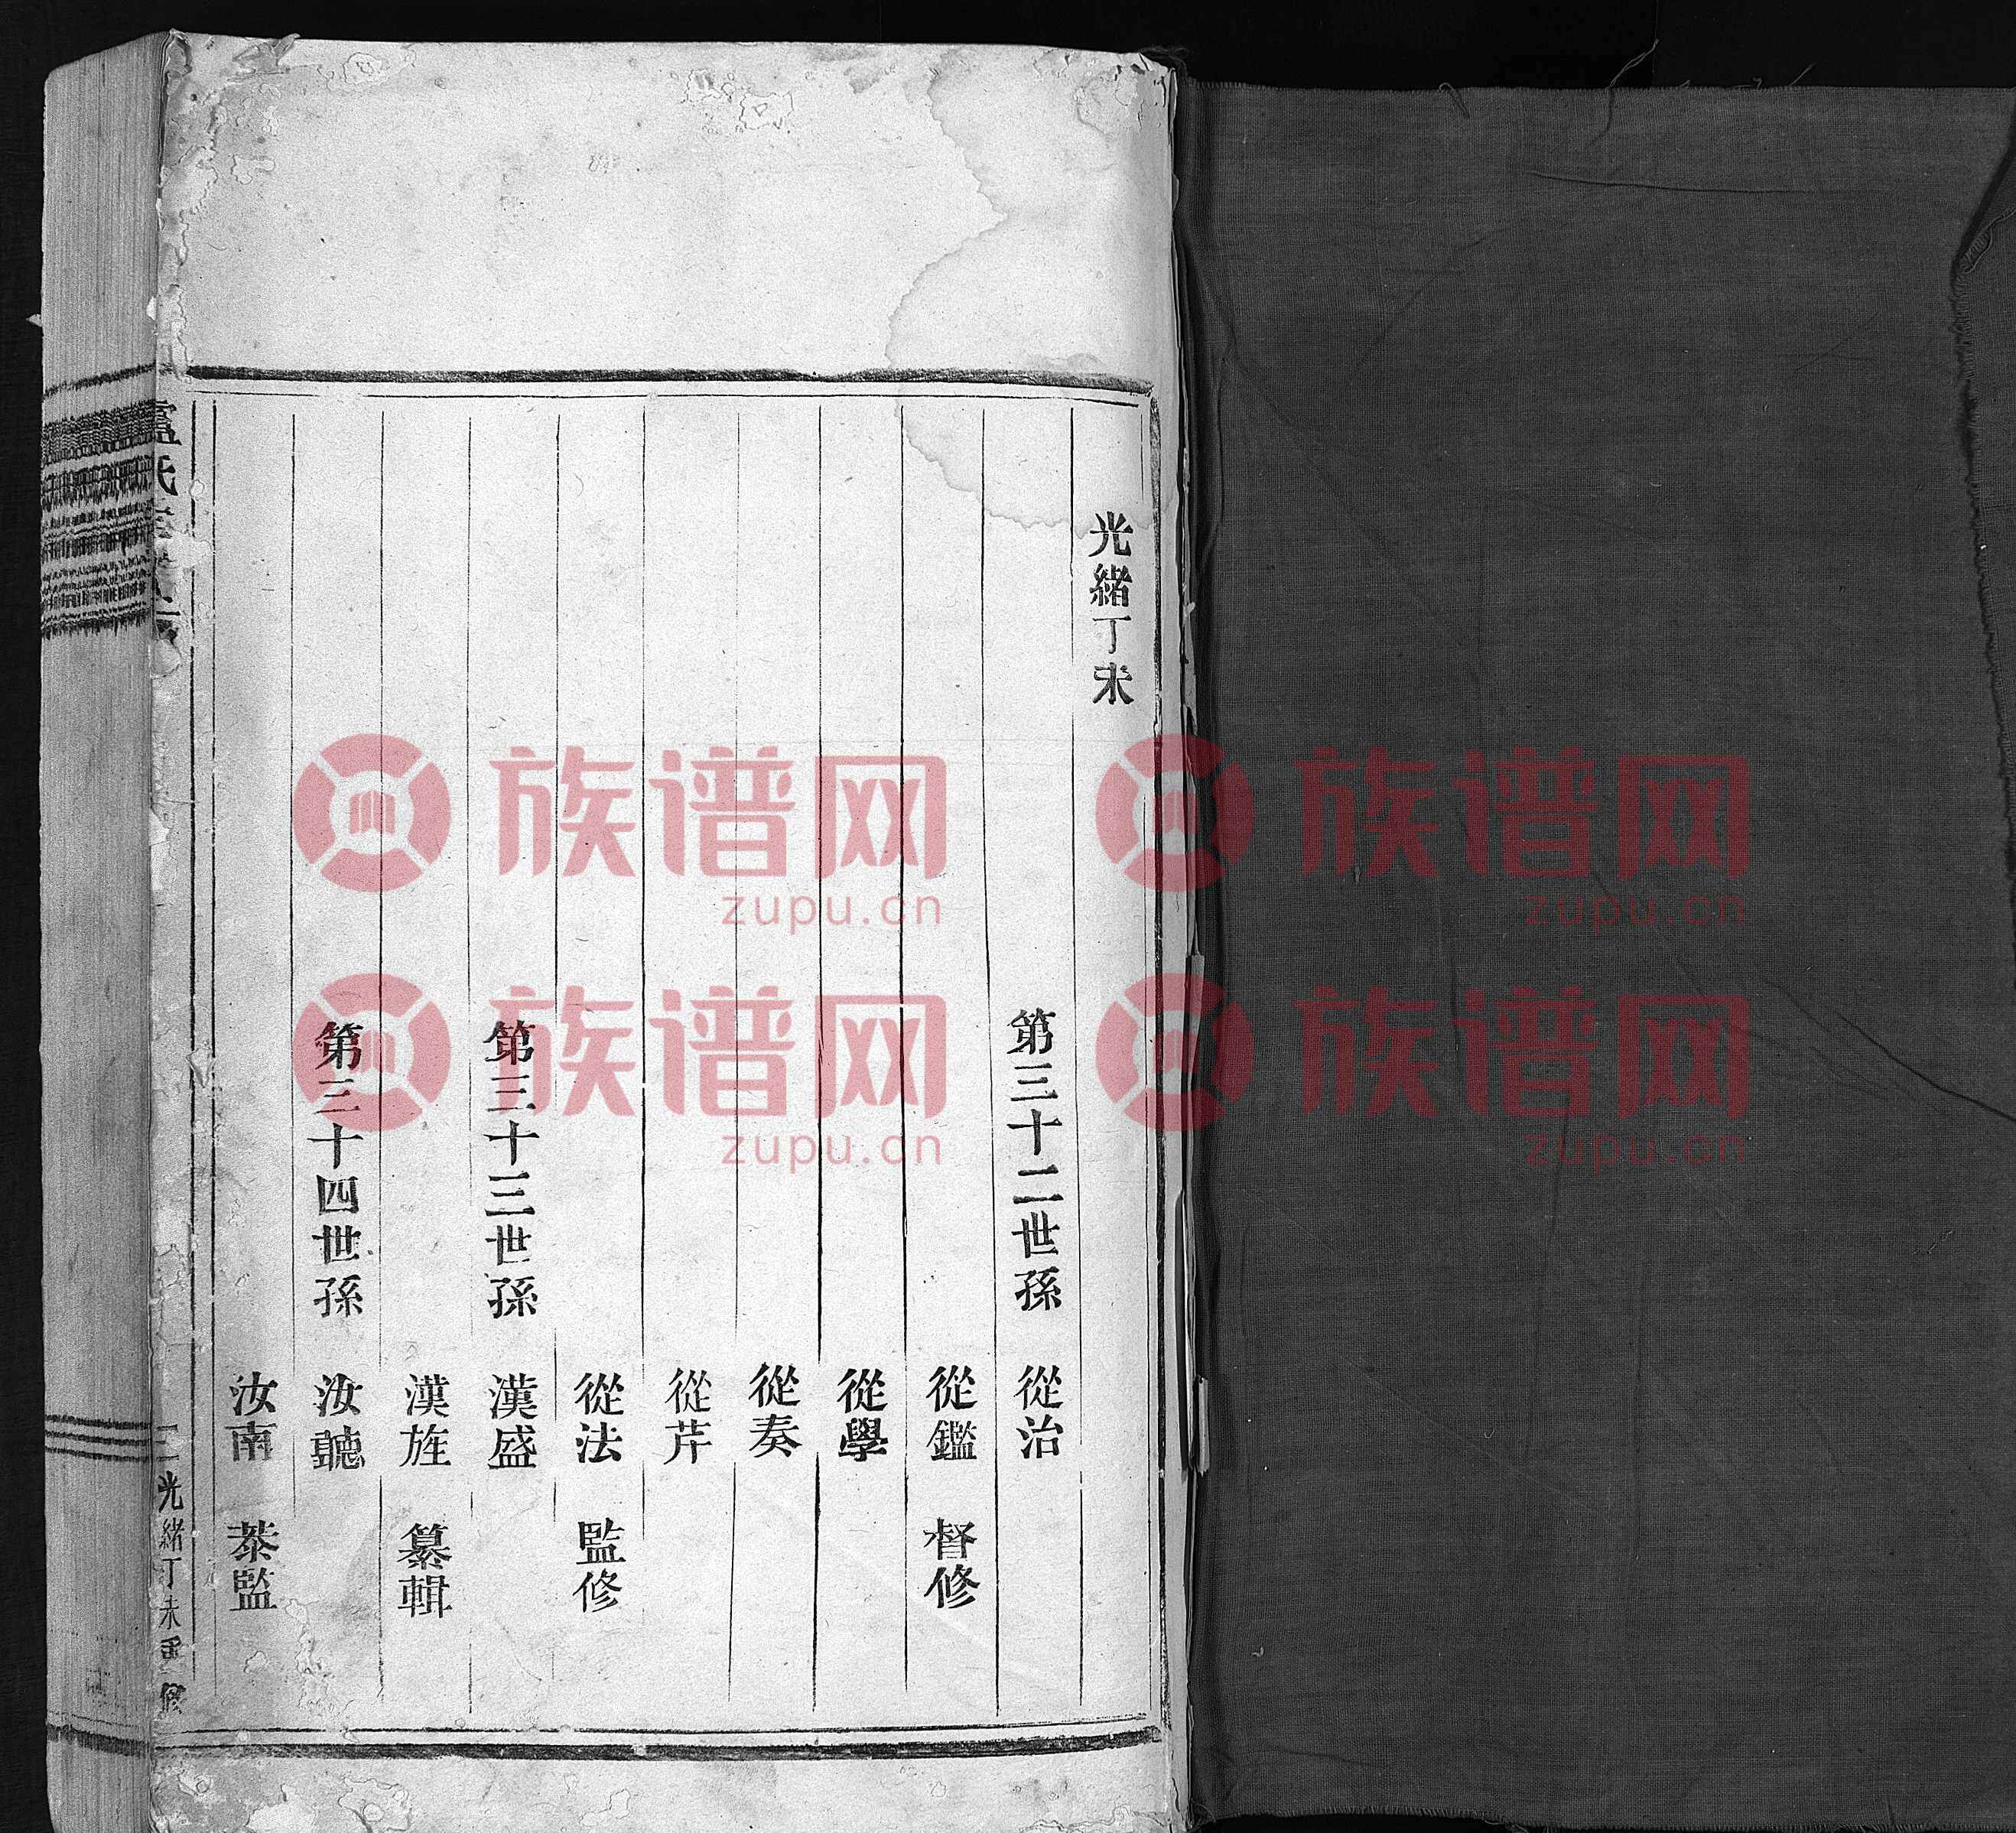 光緒丁未
第三十二世孫 從治
從鑑 督修
從學
從奏
從芹
從法 監修
第三十三世孫 漢盛
漢旌 纂輯
第三十四世孫 汝聽
汝南 叅監
盧氏
三 光緒丁未重修
族谱网 zupu.cn
族谱网 zupu.cn
族谱网 zupu.cn
族谱网 zupu.cn